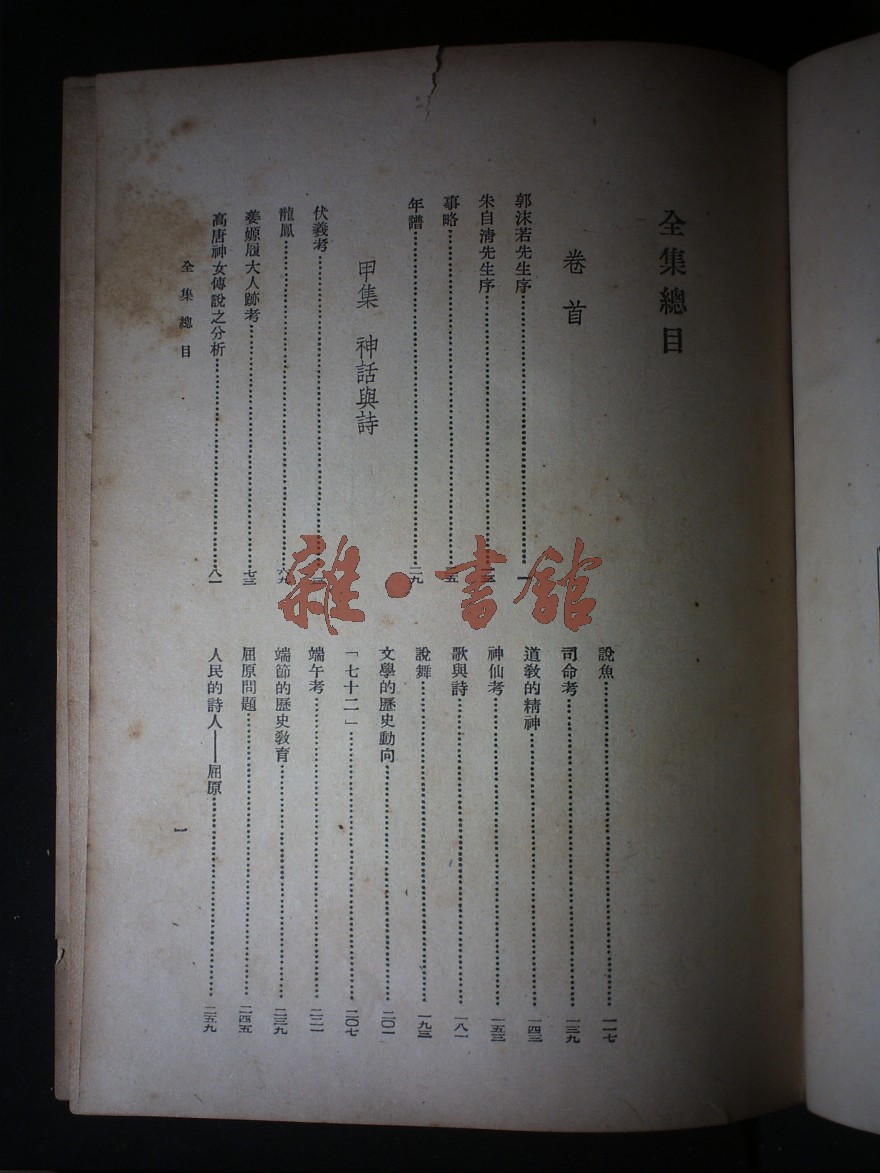 全集總目
卷首
郭沫若先生序……一
朱自清先生序……
事略……
年譜……二九
甲集 神話與詩
伏羲考……
龍鳳……六九
姜嫄履大人跡考……七三
高唐神女傳說之分析……八一
說魚……一一七
司命考……一三九
道教的精神……一四三
神仙考……一五三
歌與詩……一八一
說舞……一九三
文學的歷史動向……二〇一
「七十二」……二〇七
端午考……二二一
端節的歷史教育……二三九
屈原問題……二四五
人民的詩人——屈原……二五九
全集總目
一
雜·書館